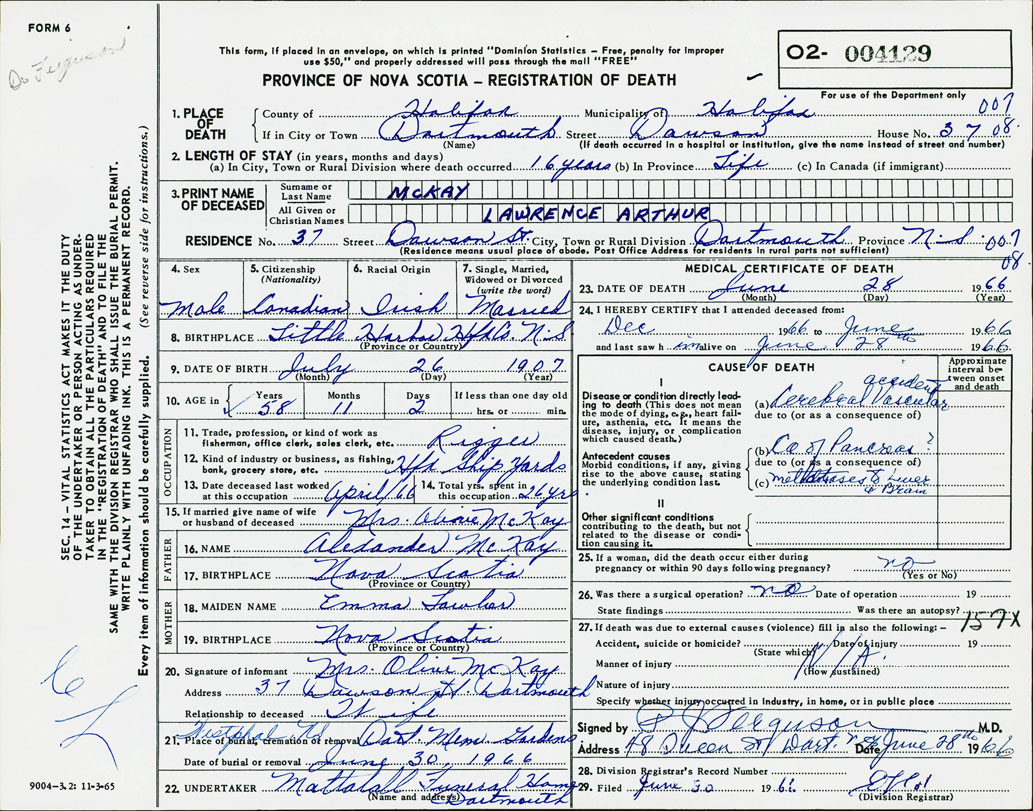 FORM 6
Dr Ferguson
This form, if placed in an envelope, on which is printed "Dominion Statistics – Free, penalty for improper
use $50," and properly addressed will pass through the mail "FREE"
PROVINCE OF NOVA SCOTIA – REGISTRATION OF DEATH
02- 004129
For use of the Department only
1. PLACE OF DEATH
County of Halifax Municipality of Halifax 007
If in City or Town Dartmouth Street Dawson House No. 37 08
(Name) (If death occurred in a hospital or institution, give the name instead of street and number)
2. LENGTH OF STAY (in years, months and days)
(a) In City, Town or Rural Division where death occurred 16 years (b) In Province Life (c) In Canada (if immigrant)
3. PRINT NAME OF DECEASED
Surname or Last Name McKAY
All Given or Christian Names LAWRENCE ARTHUR
RESIDENCE No. 37 Street Dawson St. City, Town or Rural Division Dartmouth Province N.S. 007
(Residence means usual place of abode. Post Office Address for residents in rural parts not sufficient)
08
4. Sex Male
5. Citizenship (Nationality) Canadian
6. Racial Origin Irish
7. Single, Married, Widowed or Divorced (write the word) Married
8. BIRTHPLACE Little Harbor Hfx Co. N.S
(Province or Country)
9. DATE OF BIRTH July 26 1907
(Month) (Day) (Year)
10. AGE in Years 58 Months 11 Days 2 If less than one day old hrs. or min.
OCCUPATION
11. Trade, profession, or kind of work as fisherman, office clerk, sales clerk, etc. Rigger
12. Kind of industry or business, as fishing, bank, grocery store, etc. Hfx Ship Yards
13. Date deceased last worked at this occupation April/66
14. Total yrs. spent in this occupation 26 yrs
15. If married give name of wife or husband of deceased Mrs. Olive McKay
FATHER
16. NAME Alexander McKay
17. BIRTHPLACE Nova Scotia
(Province or Country)
MOTHER
18. MAIDEN NAME Emma Lawlor
19. BIRTHPLACE Nova Scotia
(Province or Country)
20. Signature of informant Mrs. Olive McKay
Address 37 Dawson St. Dartmouth
Relationship to deceased Wife
Westphal Rd
21. Place of burial, cremation or removal Dart Mem. Gardens
Date of burial or removal June 30, 1966
22. UNDERTAKER Mattatall Funeral Home
(Name and address) Dartmouth
MEDICAL CERTIFICATE OF DEATH
23. DATE OF DEATH June 28 1966
(Month) (Day) (Year)
24. I HEREBY CERTIFY that I attended deceased from:
Dec 1966 to June 1966
and last saw him alive on June 28th 1966
CAUSE OF DEATH
Approximate interval between onset and death
I
Disease or condition directly leading to death (This does not mean the mode of dying, e.g., heart failure, asthenia, etc. It means the disease, injury, or complication which caused death.)
(a) Cerebral Vascular accident
due to (or as a consequence of)
Antecedent causes
Morbid conditions, if any, giving rise to the above cause, stating the underlying condition last.
(b) Ca of Pancreas ?
due to (or as a consequence of)
(c) metastases to Liver & Brain
II
Other significant conditions contributing to the death, but not related to the disease or condition causing it.
25. If a woman, did the death occur either during pregnancy or within 90 days following pregnancy? no
(Yes or No)
26. Was there a surgical operation? no Date of operation 19
State findings Was there an autopsy?
157X
27. If death was due to external causes (violence) fill in also the following: –
Accident, suicide or homicide? Date of injury 19
(State which)
N/A.
Manner of injury
(How sustained)
Nature of injury
Specify whether injury occurred in industry, in home, or in public place
Signed by Ferguson M.D.
Address 48 Queen St Dart. N.S. Date June 28th 1966
28. Division Registrar's Record Number
29. Filed June 30 1966
(Division Registrar)
SEC. 14 – VITAL STATISTICS ACT MAKES IT THE DUTY
OF THE UNDERTAKER OR PERSON ACTING AS UNDER-
TAKER TO OBTAIN ALL THE PARTICULARS REQUIRED
IN THE "REGISTRATION OF DEATH" AND TO FILE THE
SAME WITH THE DIVISION REGISTRAR WHO SHALL ISSUE THE BURIAL PERMIT.
WRITE PLAINLY WITH UNFADING INK. THIS IS A PERMANENT RECORD.
Every item of information should be carefully supplied. (See reverse side for instructions.)
9004-3.2: 11-3-65